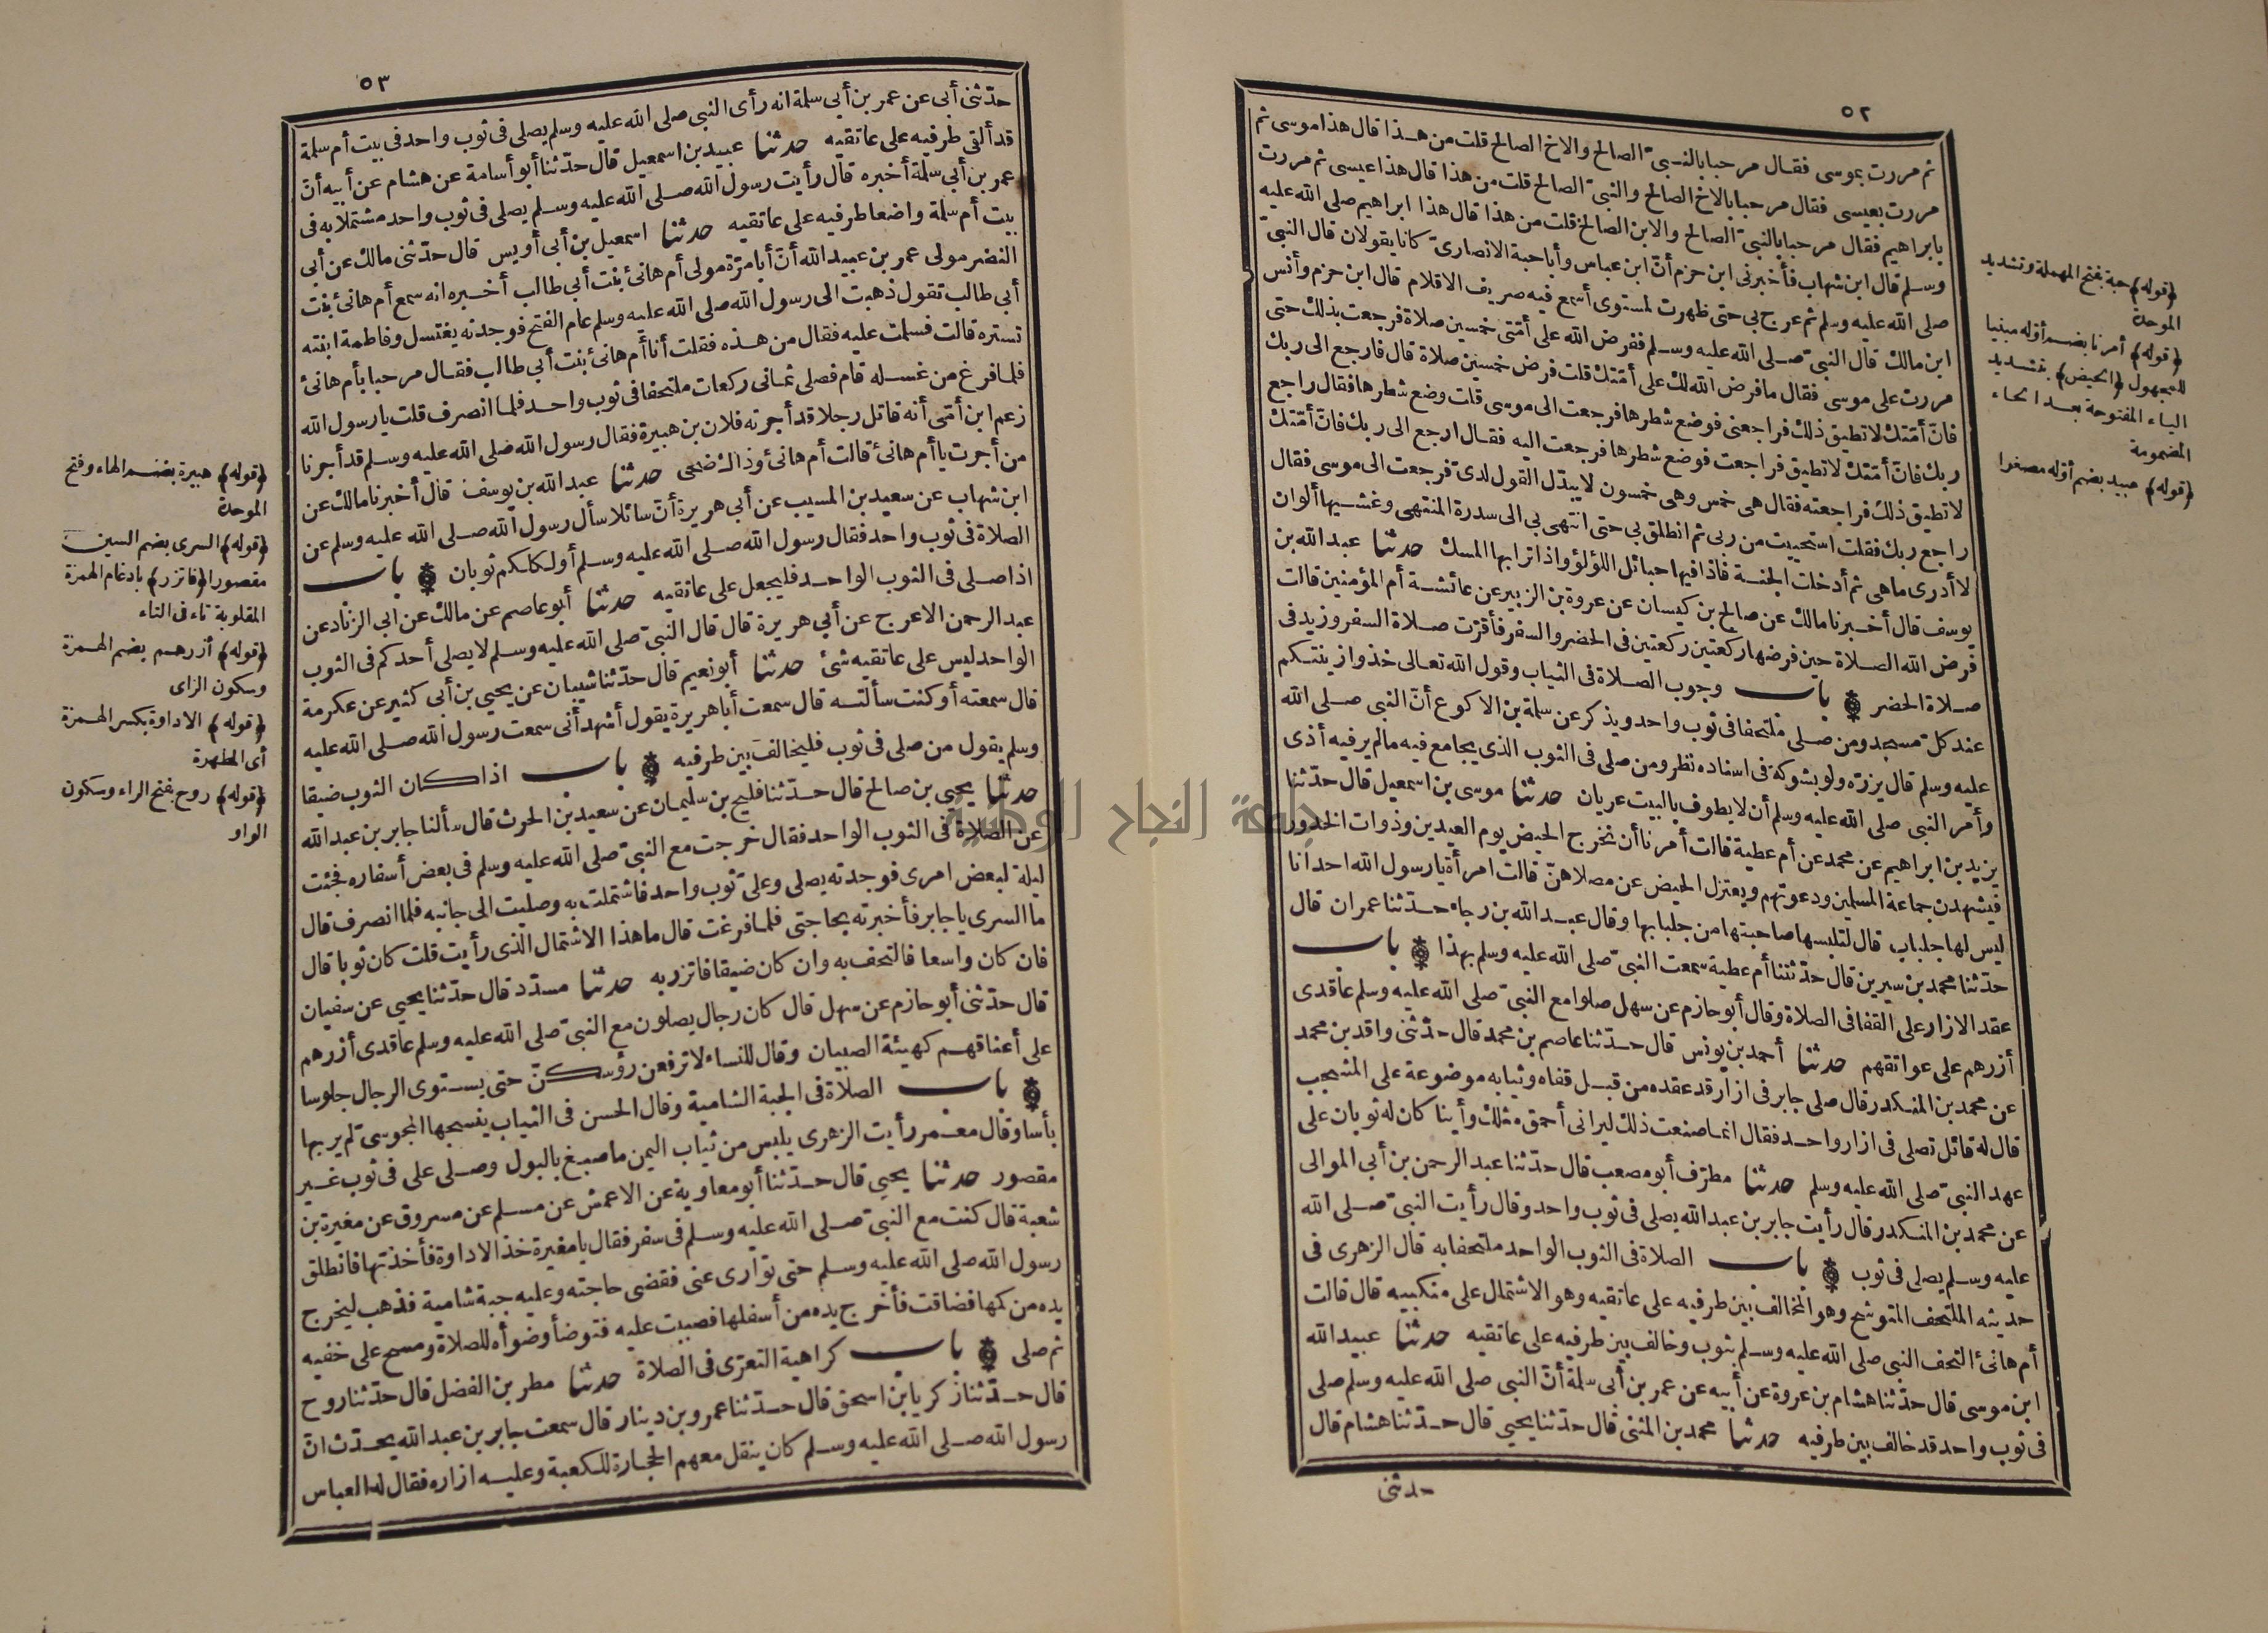 ٥٢
ثم مررت بموسى فقال مرحبا بالنبي الصالح والاخ الصالح قلت من هذا قال هذا موسى ثم
مررت بعيسى فقال مرحبا بالاخ الصالح والنبي الصالح قلت من هذا قال هذا عيسى ثم مررت
بابراهيم فقال مرحبا بالنبي الصالح والابن الصالح قلت من هذا قال هذا ابراهيم صلى الله عليه
وسلم قال ابن شهاب فأخبرني ابن حزم أنّ ابن عباس وأبا حبة الانصاريّ كانا يقولان قال النبيّ
صلى الله عليه وسلم ثم عرج بي حتى ظهرت لمستوى أسمع فيه صريف الاقلام قال ابن حزم وأنس
ابن مالك قال النبيّ صلى الله عليه وسلم ففرض الله على أمّتي خمسين صلاة فرجعت بذلك حتى
مررت على موسى فقال ما فرض الله لك على أمّتك قلت فرض خمسين صلاة قال فارجع الى ربك
فانّ أمّتك لا تطيق ذلك فراجعني فوضع شطرها فرجعت الى موسى قلت وضع شطرها فقال راجع
ربك فانّ أمّتك لا تطيق فراجعت فوضع شطرها فرجعت اليه فقال ارجع الى ربك فانّ أمّتك
لا تطيق ذلك فراجعته فقال هي خمس وهي خمسون لا يبدّل القول لديّ فرجعت الى موسى فقال
راجع ربك فقلت استحييت من ربي ثم انطلق بي حتى انتهى بي الى سدرة المنتهى وغشيها ألوان
لا أدري ما هي ثم أدخلت الجنة فاذا فيها حبائل اللؤلؤ واذا ترابها المسك حدثنا عبد الله بن
يوسف قال أخبرنا مالك عن صالح بن كيسان عن عروة بن الزبير عن عائشة أم المؤمنين قالت
فرض الله الصلاة حين فرضها ركعتين ركعتين في الحضر والسفر فأقرّت صلاة السفر وزيد في
صلاة الحضر باب وجوب الصلاة في الثياب وقول الله تعالى خذوا زينتكم
عند كلّ مسجد ومن صلى ملتحفا في ثوب واحد ويذكر عن سلمة بن الاكوع أنّ النبي صلى الله
عليه وسلم قال يزرّه ولو بشوكة في اسناده نظر ومن صلى في الثوب الذي يجامع فيه ما لم ير فيه أذى
وأمر النبي صلى الله عليه وسلم أن لا يطوف بالبيت عريان حدثنا موسى بن اسمعيل قال حدّثنا
يزيد بن ابراهيم عن محمد عن أم عطية قالت أمرنا أن نخرج الحيض يوم العيدين وذوات الخدور
فيشهدن جماعة المسلمين ودعوتهم ويعتزل الحيض عن مصلاهنّ قالت امرأة يا رسول الله احدانا
ليس لها جلباب قال لتلبسها صاحبتها من جلبابها وقال عبد الله بن رجاء حدّثنا عمران قال
حدّثنا محمد بن سيرين قال حدّثتنا أم عطية سمعت النبيّ صلى الله عليه وسلم بهذا باب
عقد الازار على القفا في الصلاة وقال أبو حازم عن سهل صلوا مع النبيّ صلى الله عليه وسلم عاقدي
أزرهم على عواتقهم حدثنا أحمد بن يونس قال حدّثنا عاصم بن محمد قال حدّثني واقد بن محمد
عن محمد بن المنكدر قال صلى جابر في ازار قد عقده من قبل قفاه وثيابه موضوعة على المشجب
قال له قائل تصلي في ازار واحد فقال انما صنعت ذلك ليراني أحمق مثلك وأينا كان له ثوبان على
عهد النبيّ صلى الله عليه وسلم حدثنا مطرّف أبو مصعب قال حدّثنا عبد الرحمن بن أبي الموالى
عن محمد بن المنكدر قال رأيت جابر بن عبد الله يصلي في ثوب واحد وقال رأيت النبيّ صلى الله
عليه وسلم يصلي في ثوب باب الصلاة في الثوب الواحد ملتحفا به قال الزهري في
حديثه الملتحف المتوشح وهو المخالف بين طرفيه على عاتقيه وهو الاشتمال على منكبيه قال قالت
أم هانئ التحف النبي صلى الله عليه وسلم بثوب وخالف بين طرفيه على عاتقيه حدثنا عبيد الله
ابن موسى قال حدّثنا هشام بن عروة عن أبيه عن عمر بن أبي سلمة أنّ النبي صلى الله عليه وسلم صلى
في ثوب واحد قد خالف بين طرفيه حدثنا محمد بن المثنى قال حدّثنا يحيى قال حدّثنا هشام قال
حدثني
﴿قوله﴾ حبة بفتح المهملة وتشديد
الموحدة
﴿قوله﴾ أمرنا بضم أوّله مبنيا
للمجهول ﴿الحيض﴾ بتشديد
الياء المفتوحة بعد الحاء
المضمومة
﴿قوله﴾ عبيد بضم أوّله مصغرا
٥٣
حدّثني أبي عن عمر بن أبي سلمة انه رأى النبي صلى الله عليه وسلم يصلي في ثوب واحد في بيت أم سلمة
قد ألقى طرفيه على عاتقيه حدثنا عبيد بن اسمعيل قال حدّثنا أبو أسامة عن هشام عن أبيه أنّ
عمر بن أبي سلمة أخبره قال رأيت رسول الله صلى الله عليه وسلم يصلي في ثوب واحد مشتملا به في
بيت أم سلمة واضعا طرفيه على عاتقيه حدثنا اسمعيل بن أبي أويس قال حدّثني مالك عن أبي
النضر مولى عمر بن عبيد الله أنّ أبا مرّة مولى أم هانئ بنت أبي طالب أخبره انه سمع أم هانئ بنت
أبي طالب تقول ذهبت الى رسول الله صلى الله عليه وسلم عام الفتح فوجدته يغتسل وفاطمة ابنته
تستره قالت فسلمت عليه فقال من هذه فقلت أنا أم هانئ بنت أبي طالب فقال مرحبا بأم هانئ
فلما فرغ من غسله قام فصلى ثماني ركعات ملتحفا في ثوب واحد فلما انصرف قلت يا رسول الله
زعم ابن أمّي أنه قاتل رجلا قد أجرته فلان بن هبيرة فقال رسول الله صلى الله عليه وسلم قد أجرنا
من أجرت يا أم هانئ قالت أم هانئ وذاك ضحى حدثنا عبد الله بن يوسف قال أخبرنا مالك عن
ابن شهاب عن سعيد بن المسيب عن أبي هريرة أنّ سائلا سأل رسول الله صلى الله عليه وسلم عن
الصلاة في ثوب واحد فقال رسول الله صلى الله عليه وسلم أولكلكم ثوبان باب
اذا صلى في الثوب الواحد فليجعل على عاتقيه حدثنا أبو عاصم عن مالك عن أبي الزناد عن
عبد الرحمن الاعرج عن أبي هريرة قال قال النبيّ صلى الله عليه وسلم لا يصلي أحدكم في الثوب
الواحد ليس على عاتقيه شئ حدثنا أبو نعيم قال حدّثنا شيبان عن يحيى بن أبي كثير عن عكرمة
قال سمعته أو كنت سألته قال سمعت أبا هريرة يقول أشهد أني سمعت رسول الله صلى الله عليه
وسلم يقول من صلى في ثوب فليخالف بين طرفيه باب اذا كان الثوب ضيقا
حدثنا يحيى بن صالح قال حدّثنا فليح بن سليمان عن سعيد بن الحرث قال سألنا جابر بن عبد الله
عن الصلاة في الثوب الواحد فقال خرجت مع النبيّ صلى الله عليه وسلم في بعض أسفاره فجئت
ليلة لبعض امرى فوجدته يصلي وعليّ ثوب واحد فاشتملت به وصليت الى جانبه فلما انصرف قال
ما السرى يا جابر فأخبرته بحاجتي فلما فرغت قال ما هذا الاشتمال الذي رأيت قلت كان ثوبا قال
فان كان واسعا فالتحف به وان كان ضيقا فاتزر به حدثنا مسدّد قال حدّثنا يحيى عن سفيان
قال حدّثني أبو حازم عن سهل قال كان رجال يصلون مع النبيّ صلى الله عليه وسلم عاقدي أزرهم
على أعناقهم كهيئة الصبيان وقال للنساء لا ترفعن رؤسكنّ حتى يستوي الرجال جلوسا
باب الصلاة في الجبة الشامية وقال الحسن في الثياب ينسجها المجوسيّ لم ير بها
بأسا وقال معمر رأيت الزهري يلبس من ثياب اليمن ما صبغ بالبول وصلى على في ثوب غير
مقصور حدثنا يحيى قال حدّثنا أبو معاوية عن الاعمش عن مسلم عن مسروق عن مغيرة بن
شعبة قال كنت مع النبيّ صلى الله عليه وسلم في سفر فقال يا مغيرة خذ الاداوة فأخذتها فانطلق
رسول الله صلى الله عليه وسلم حتى توارى عني فقضى حاجته وعليه جبة شامية فذهب ليخرج
يده من كمها فضاقت فأخرج يده من أسفلها فصببت عليه فتوضأ وضوأه للصلاة ومسح على خفيه
ثم صلى باب كراهية التعرّي في الصلاة حدثنا مطر بن الفضل قال حدّثنا روح
قال حدّثنا زكريا بن اسحق قال حدّثنا عمرو بن دينار قال سمعت جابر بن عبد الله يحدّث انّ
رسول الله صلى الله عليه وسلم كان ينقل معهم الحجارة للكعبة وعليه ازاره فقال له العباس
﴿قوله﴾ هبيرة بضم الهاء وفتح
الموحدة
﴿قوله﴾ السرى بضم السين
مقصورا ﴿فاتزر﴾ بادغام الهمزة
المقلوبة تاء في التاء
﴿قوله﴾ أزرهم بضم الهمزة
وسكون الزاى
﴿قوله﴾ الاداوة بكسر الهمزة
أى المطهرة
﴿قوله﴾ روح بفتح الراء وسكون
الواو
جامعة النجاح الوطنية